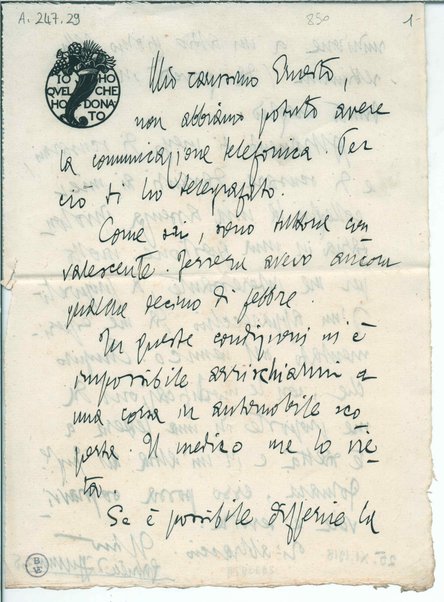 A. 247.29
850
1-
IO HO
QVEL CHE
HO DONA
TO
Mio carissimo Ernesto,
non abbiamo potuto avere
la comunicazione telefonica. Per
ciò ti ho telegrafato.
Come sai, sono tuttora con
valescente. Iersera avevo ancora
qualche decimo di febbre.
In queste condizioni mi è
impossibile arrischiarmi a
una corsa in automobile sco
perta. Il medico me lo vie
ta.
Se è possibile differire la
B
VE